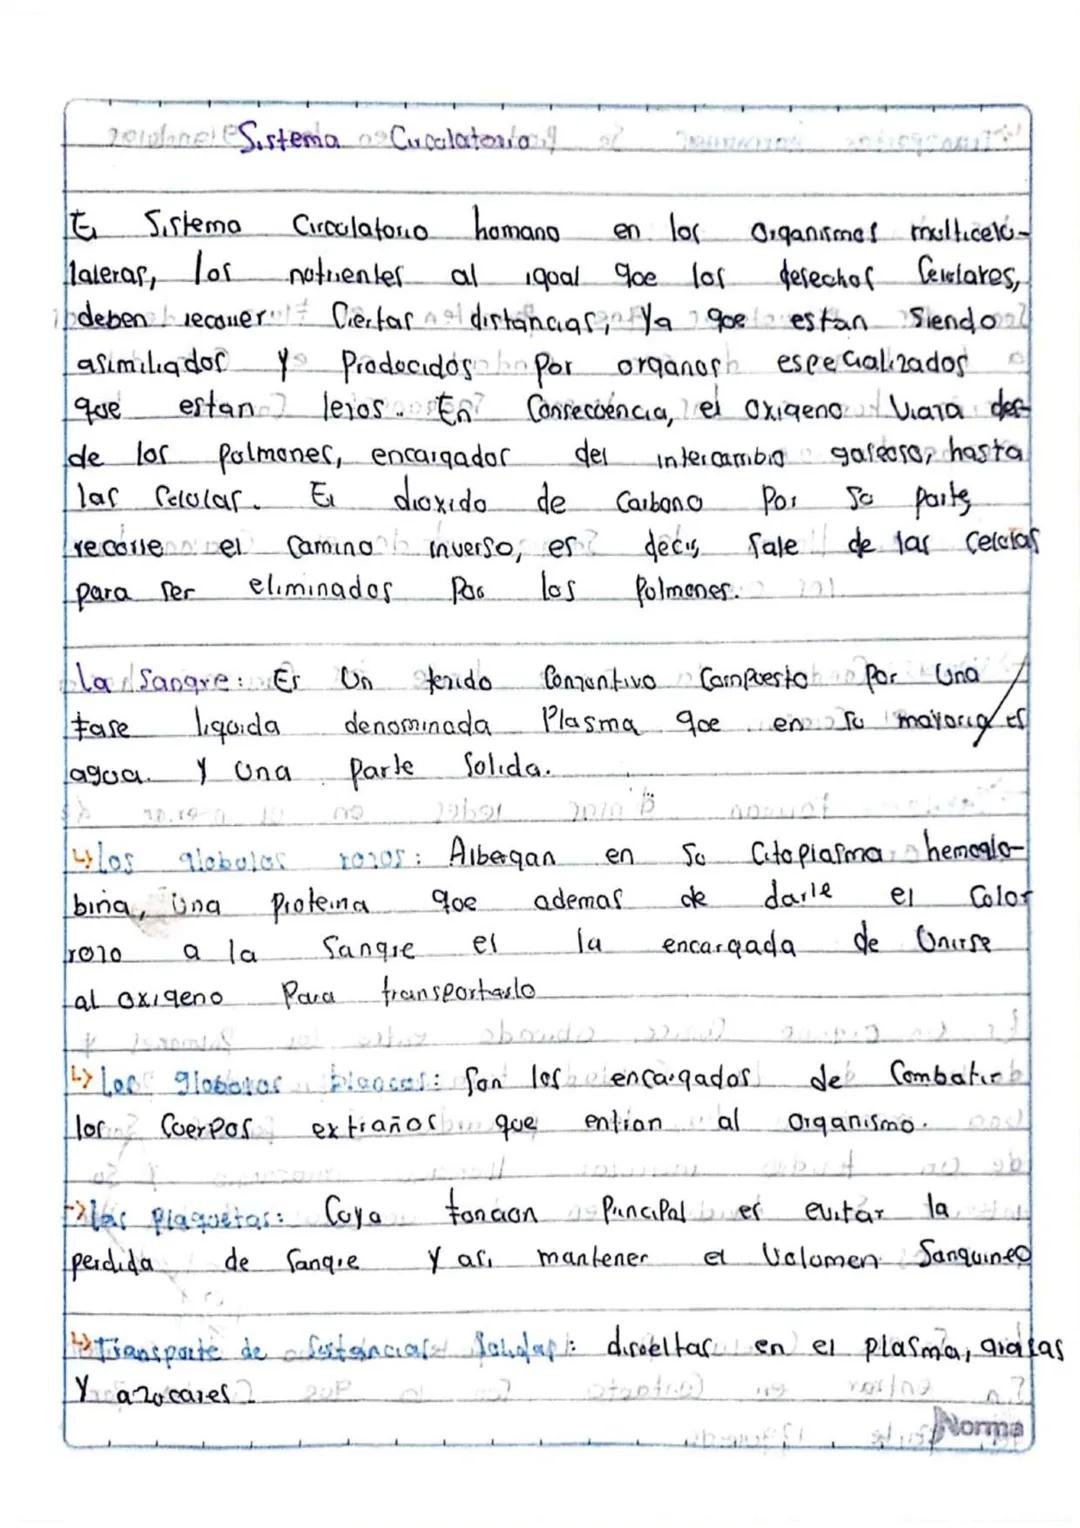 Sistema Circulatorio
El Sistema Circulatorio humano en los Organismos multicelu-
laleras, los nutrientes al igual que los desechos Celulares,
deben recorrer Ciertas distancias, Ya que estan Siendo
asimiliados y Producidos Por organos especializados
que estan lejos. En Consecuencia, el oxigeno Viaja des-
de los pulmones, encargados del intercambio gaseoso, hasta
las Celulas. El dioxido de Carbono Por su parte
recorre el Camino inverso, es decir, Sale de las Celulas
para ser eliminados Por los Pulmones.
La Sangre: Es Un tejido Conjuntivo Compuesto Por Una
fase liquida denominada Plasma que en su mayoria es
agua. Y Una parte Solida.
↳ Los globulos rojos: Albergan en Su Citoplasma hemoglo-
bina, Una Proteina que ademas de darle el Color
rojo a la Sangre es la encargada de Unirse
al oxigeno Para transportarlo
↳ Los globulos blancos: Son los encargados de Combatir
los Cuerpos extraños que entran al Organismo.
→ las plaquetas: Cuya funcion Principal es evitar la
perdida de Sangre Y asi mantener el Volumen Sanguineo
↳ Transporte de Sustancias Solidas: disueltas en el plasma, grasas
Y azucares.
Norma